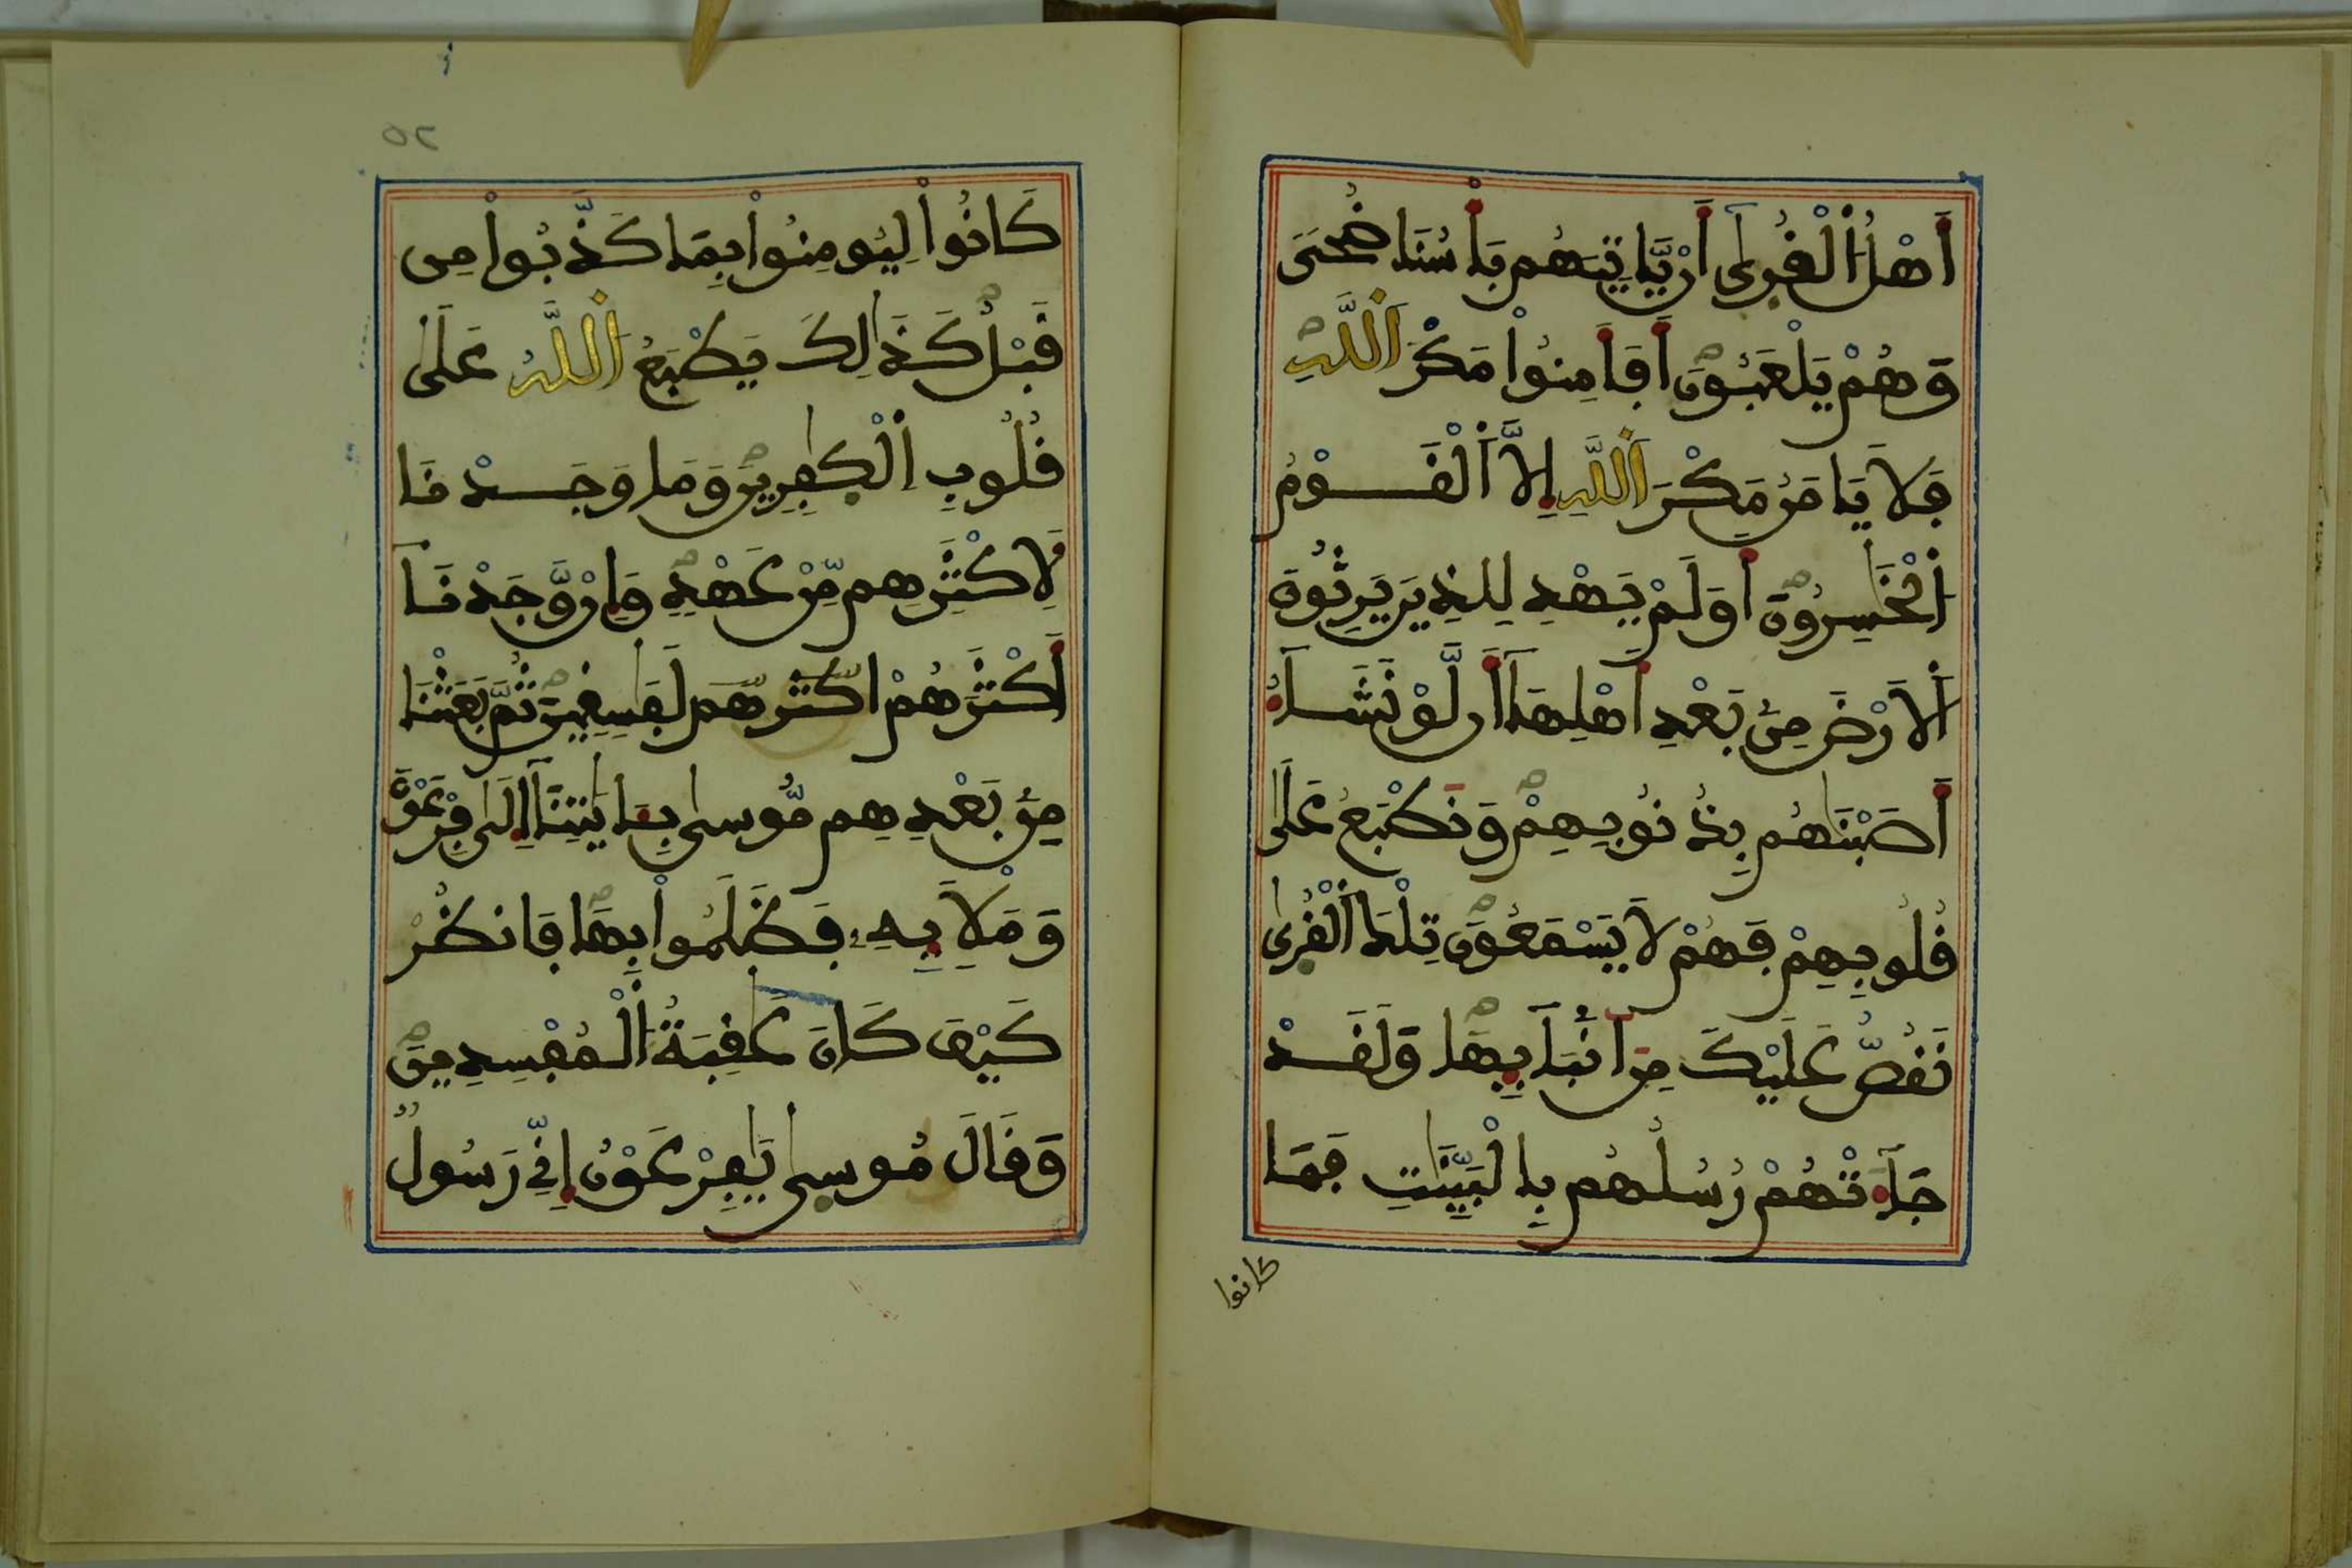 أَهْلُ اَ۬لْقُر۪يٰٓ أَنْ يَّاتِيَهُم بَأْسُنَا ضُحيٗ
وَهُمْ يَلْعَبُونَۖ أَفَأَمِنُواْ مَكْرَ اَ۬للَّهِۖ
فَلَا يَامَنُ مَكْرَ اَ۬للَّهِ إِلَّا اَ۬لْقَوْمُ
اُ۬لْخَٰسِرُونَۖ أَوَلَمْ يَهْدِ لِلذِينَ يَرِثُونَ
اَ۬لَارْضَ مِنۢ بَعْدِ أَهْلِهَآ أَن لَّوْ نَشَآءُ
أَصَبْنَٰهُم بِذُنُوبِهِمْۖ وَنَطْبَعُ عَلَيٰ
قُلُوبِهِمْ فَهُمْ لَا يَسْمَعُونَۖ تِلْكَ اَ۬لْقُر۪يٰ
نَقُصُّ عَلَيْكَ مِنَ اَنۢبَآئِهَاۖ وَلَقَدْ
جَآءَتْهُمْ رُسُلُهُم بِالْبَيِّنَٰتِ فَمَا
كانوا
٥٢
كَانُواْ لِيُومِنُواْ بِمَا كَذَّبُواْ مِن
قَبْلُۖ كَذَٰلِكَ يَطْبَعُ اُ۬للَّهُ عَلَيٰ
قُلُوبِ اِ۬لْكٰ۪فِرِينَۖ وَمَا وَجَدْنَا
لِأَكْثَرِهِم مِّنْ عَهْدٖۖ وَإِنْ وَّجَدْنَآ
أَكْثَرَهُمْ اكثرهم لَفَٰسِقِينَۖ ثُمَّ بَعَثْنَا
مِنۢ بَعْدِهِم مُّوس۪يٰ بِـَٔايَٰتِنَآ إِلَيٰ فِرْعَوْنَ
وَمَلَإِيْهِۦ فَظَلَمُواْ بِهَاۖ فَانظُرْ
كَيْفَ كَانَ عَٰقِبَةُ اُ۬لْمُفْسِدِينَۖ
وَقَالَ مُوس۪يٰ يَٰفِرْعَوْنُ إِنِّي رَسُولٞ